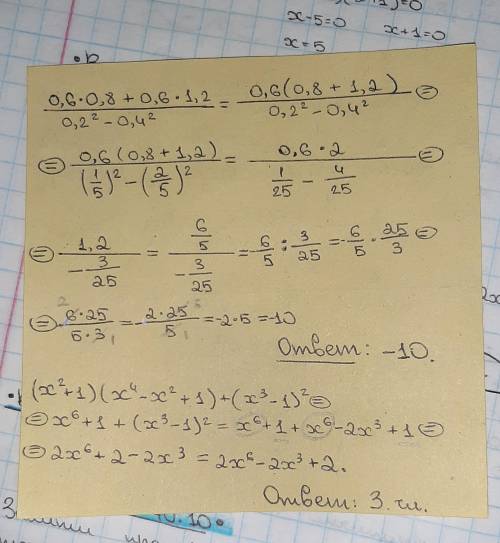 x-5=0 x+1=0
x=5
(0,6·0,8+0,6·1,2)/(0,2²-0,4²) = 0,6(0,8+1,2)/(0,2²-0,4²) ⊜
⊜ 0,6(0,8+1,2)/((1/5)²-(2/5)²) = (0,6·2)/(1/25 - 4/25) ⊜
⊜ 1,2/(-3/25) = (6/5)/(-3/25) = -6/5 : 3/25 = -6/5 · 25/3 ⊜
⊜ -(6·25)/(5·3) = -(2·25)/5 = -2·5 = -10
Ответ: -10.
(x²+1)(x⁴-x²+1)+(x³-1)² ⊜
⊜ x⁶+1+(x³-1)² = x⁶+1+x⁶-2x³+1 ⊜
⊜ 2x⁶+2-2x³ = 2x⁶-2x³+2.
Ответ: 3. чл.